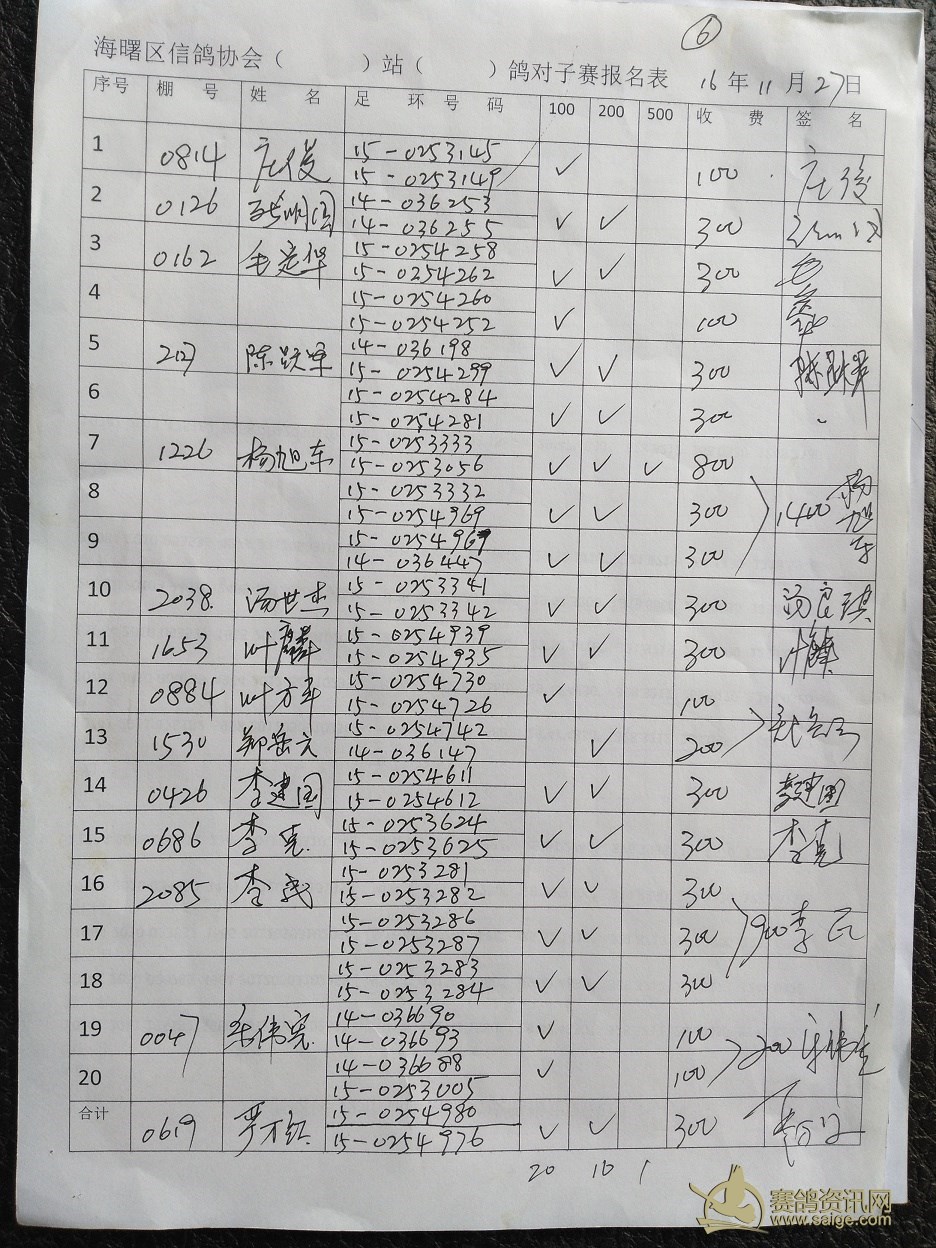 ⑥
海曙区信鸽协会（ ）站（ ）鸽对子赛报名表 16年11月27日
序号 棚 号 姓 名 足 环 号 码 100 200 500 收 费 签 名
1 0814 庄俊 15-0253145 15-0253149 ✓ 100 庄俊
2 0126 14-036253 14-036255 ✓ ✓ 300
3 0162 毛定华 15-0254258 15-0254262 ✓ ✓ 300 毛
4 15-0254260 15-0254252 ✓ 100
5 2127 陈跃军 14-036198 15-0254299 ✓ ✓ 300 陈跃军
6 15-0254284 15-0254281 ✓ ✓ 300
7 1226 杨旭东 15-0253333 15-0253056 ✓ ✓ ✓ 800
8 15-0253332 15-0254969 ✓ ✓ 300 1400 杨旭东
9 15-0254967 14-036447 ✓ ✓ 300
10 2038. 汤世杰 15-0253341 15-0253342 ✓ ✓ 300
11 1653 叶麟 15-0254939 15-0254935 ✓ ✓ 300 叶麟
12 0884 叶方平 15-0254730 15-0254726 ✓ 100
13 1530 郑岳云 15-0254742 14-036147 ✓ 200
14 0426 李建国 15-0254611 15-0254612 ✓ ✓ 300 李建国
15 0686 李亮 15-0253624 15-0253625 ✓ ✓ 300 李亮
16 2085 李民 15-0253281 15-0253282 ✓ ✓ 300
17 15-0253286 15-0253287 ✓ ✓ 300 900 李民
18 15-0253283 15-0253284 ✓ ✓ 300
19 0047 14-036690 14-036693 ✓ 100 200
20 14-036688 15-0253005 ✓ 100
合计 0619 严万钦 15-0254980 15-0254976 ✓ ✓ 300
20 16 1
赛鸽资讯网
www.saige.com